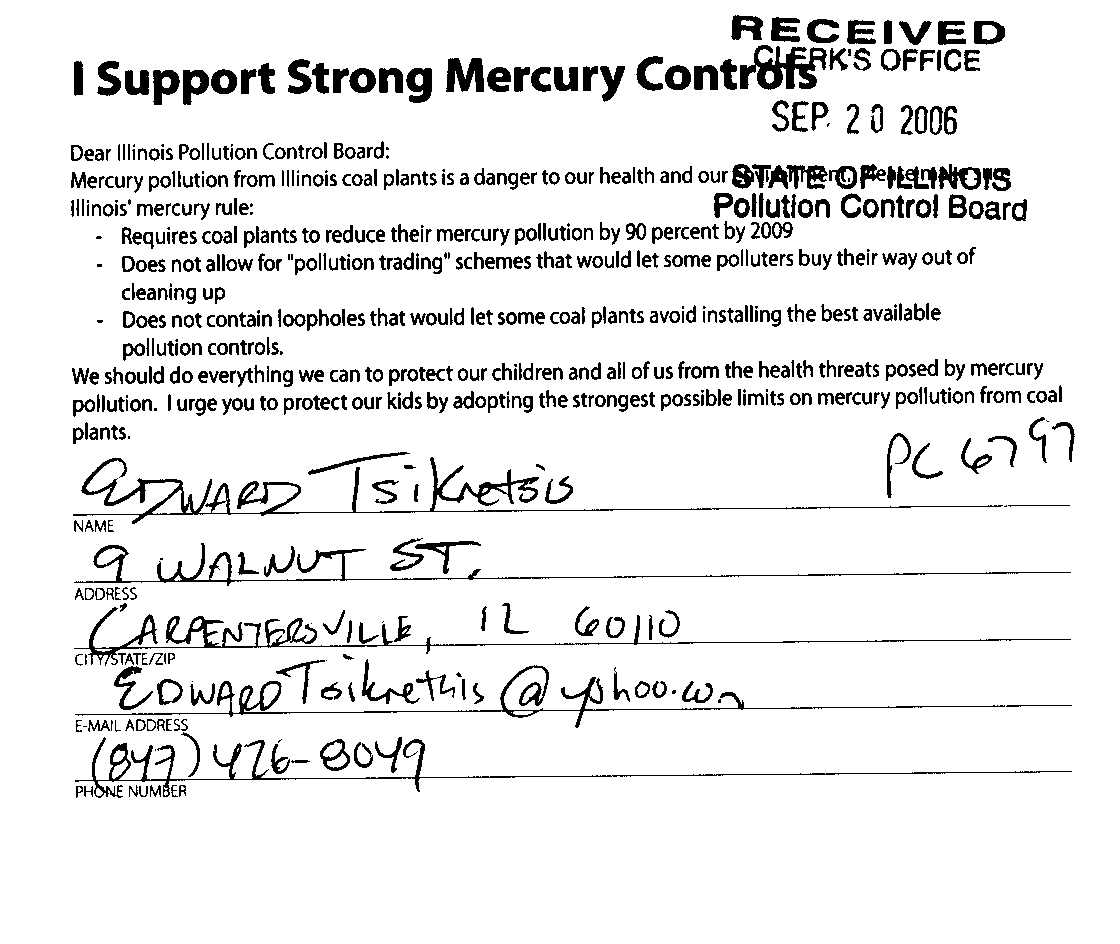 RECEIVED
CLERK'S OFFICE
I Support Strong Mercury Controls
SEP. 20 2006
Dear Illinois Pollution Control Board:
Mercury pollution from Illinois coal plants is a danger to our health and our
STATE OF ILLINOIS
Illinois' mercury rule:
Pollution Control Board
- Requires coal plants to reduce their mercury pollution by 90 percent by 2009
- Does not allow for "pollution trading" schemes that would let some polluters buy their way out of
cleaning up
- Does not contain loopholes that would let some coal plants avoid installing the best available
pollution controls.
We should do everything we can to protect our children and all of us from the health threats posed by mercury
pollution. I urge you to protect our kids by adopting the strongest possible limits on mercury pollution from coal
plants.
PC 6797
EDWARD Tsikretsis
NAME
9 WALNUT ST.
ADDRESS
CARPENTERSVILLE, IL 60110
CITY/STATE/ZIP
E-MAIL ADDRESS
(847) 426-8049
PHONE NUMBER